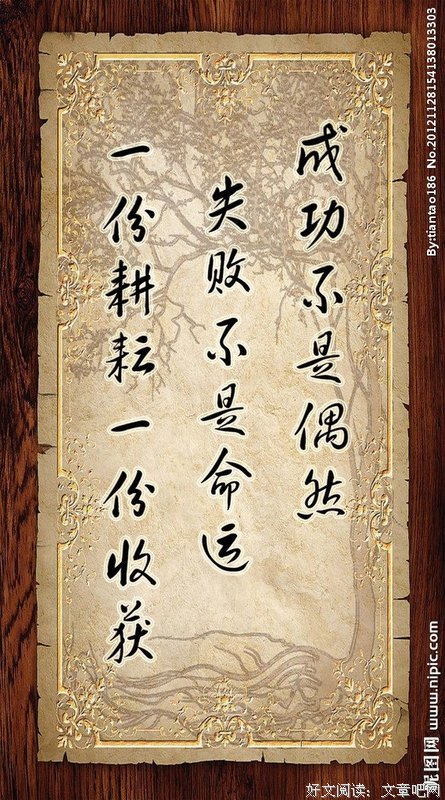 成功不是偶然
失败不是命运
一份耕耘一份收获
By:tiantao186 No.20121128154138013303
昵图网 www.nipic.com
好文阅读：文章吧网